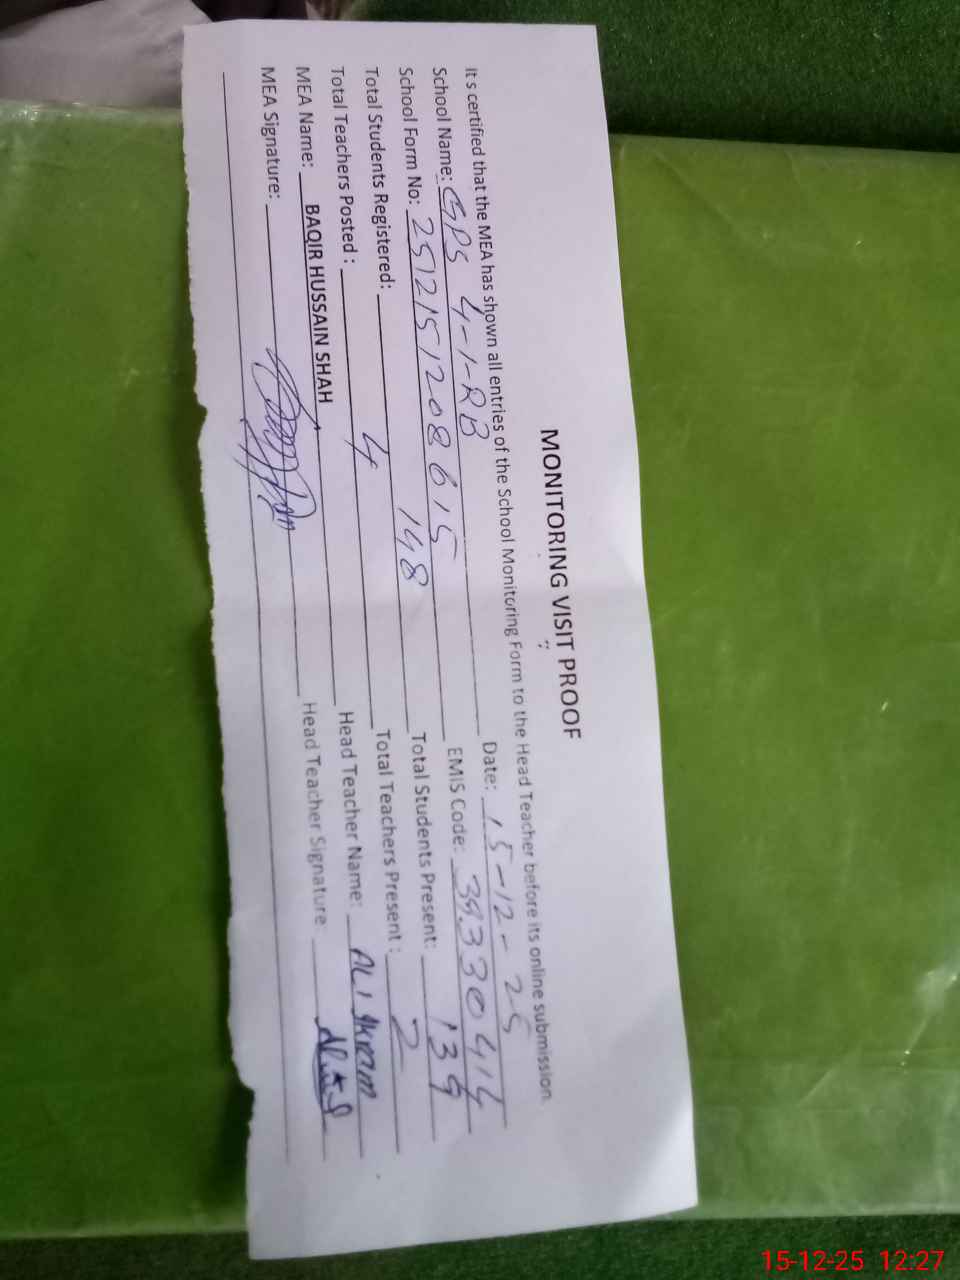 MONITORING VISIT PROOF
It s certified that the MEA has shown all entries of the School Monitoring Form to the Head Teacher before its online submission.
School Name: GPS 4-1-RB Date: 15-12-25
School Form No: 2512151208615 EMIS Code: 39330414
Total Students Registered: 148 Total Students Present: 139
Total Teachers Posted : 4 Total Teachers Present : 2
MEA Name: BAQIR HUSSAIN SHAH Head Teacher Name: ALI IKRAM
MEA Signature: Head Teacher Signature
15-12-25 12:27